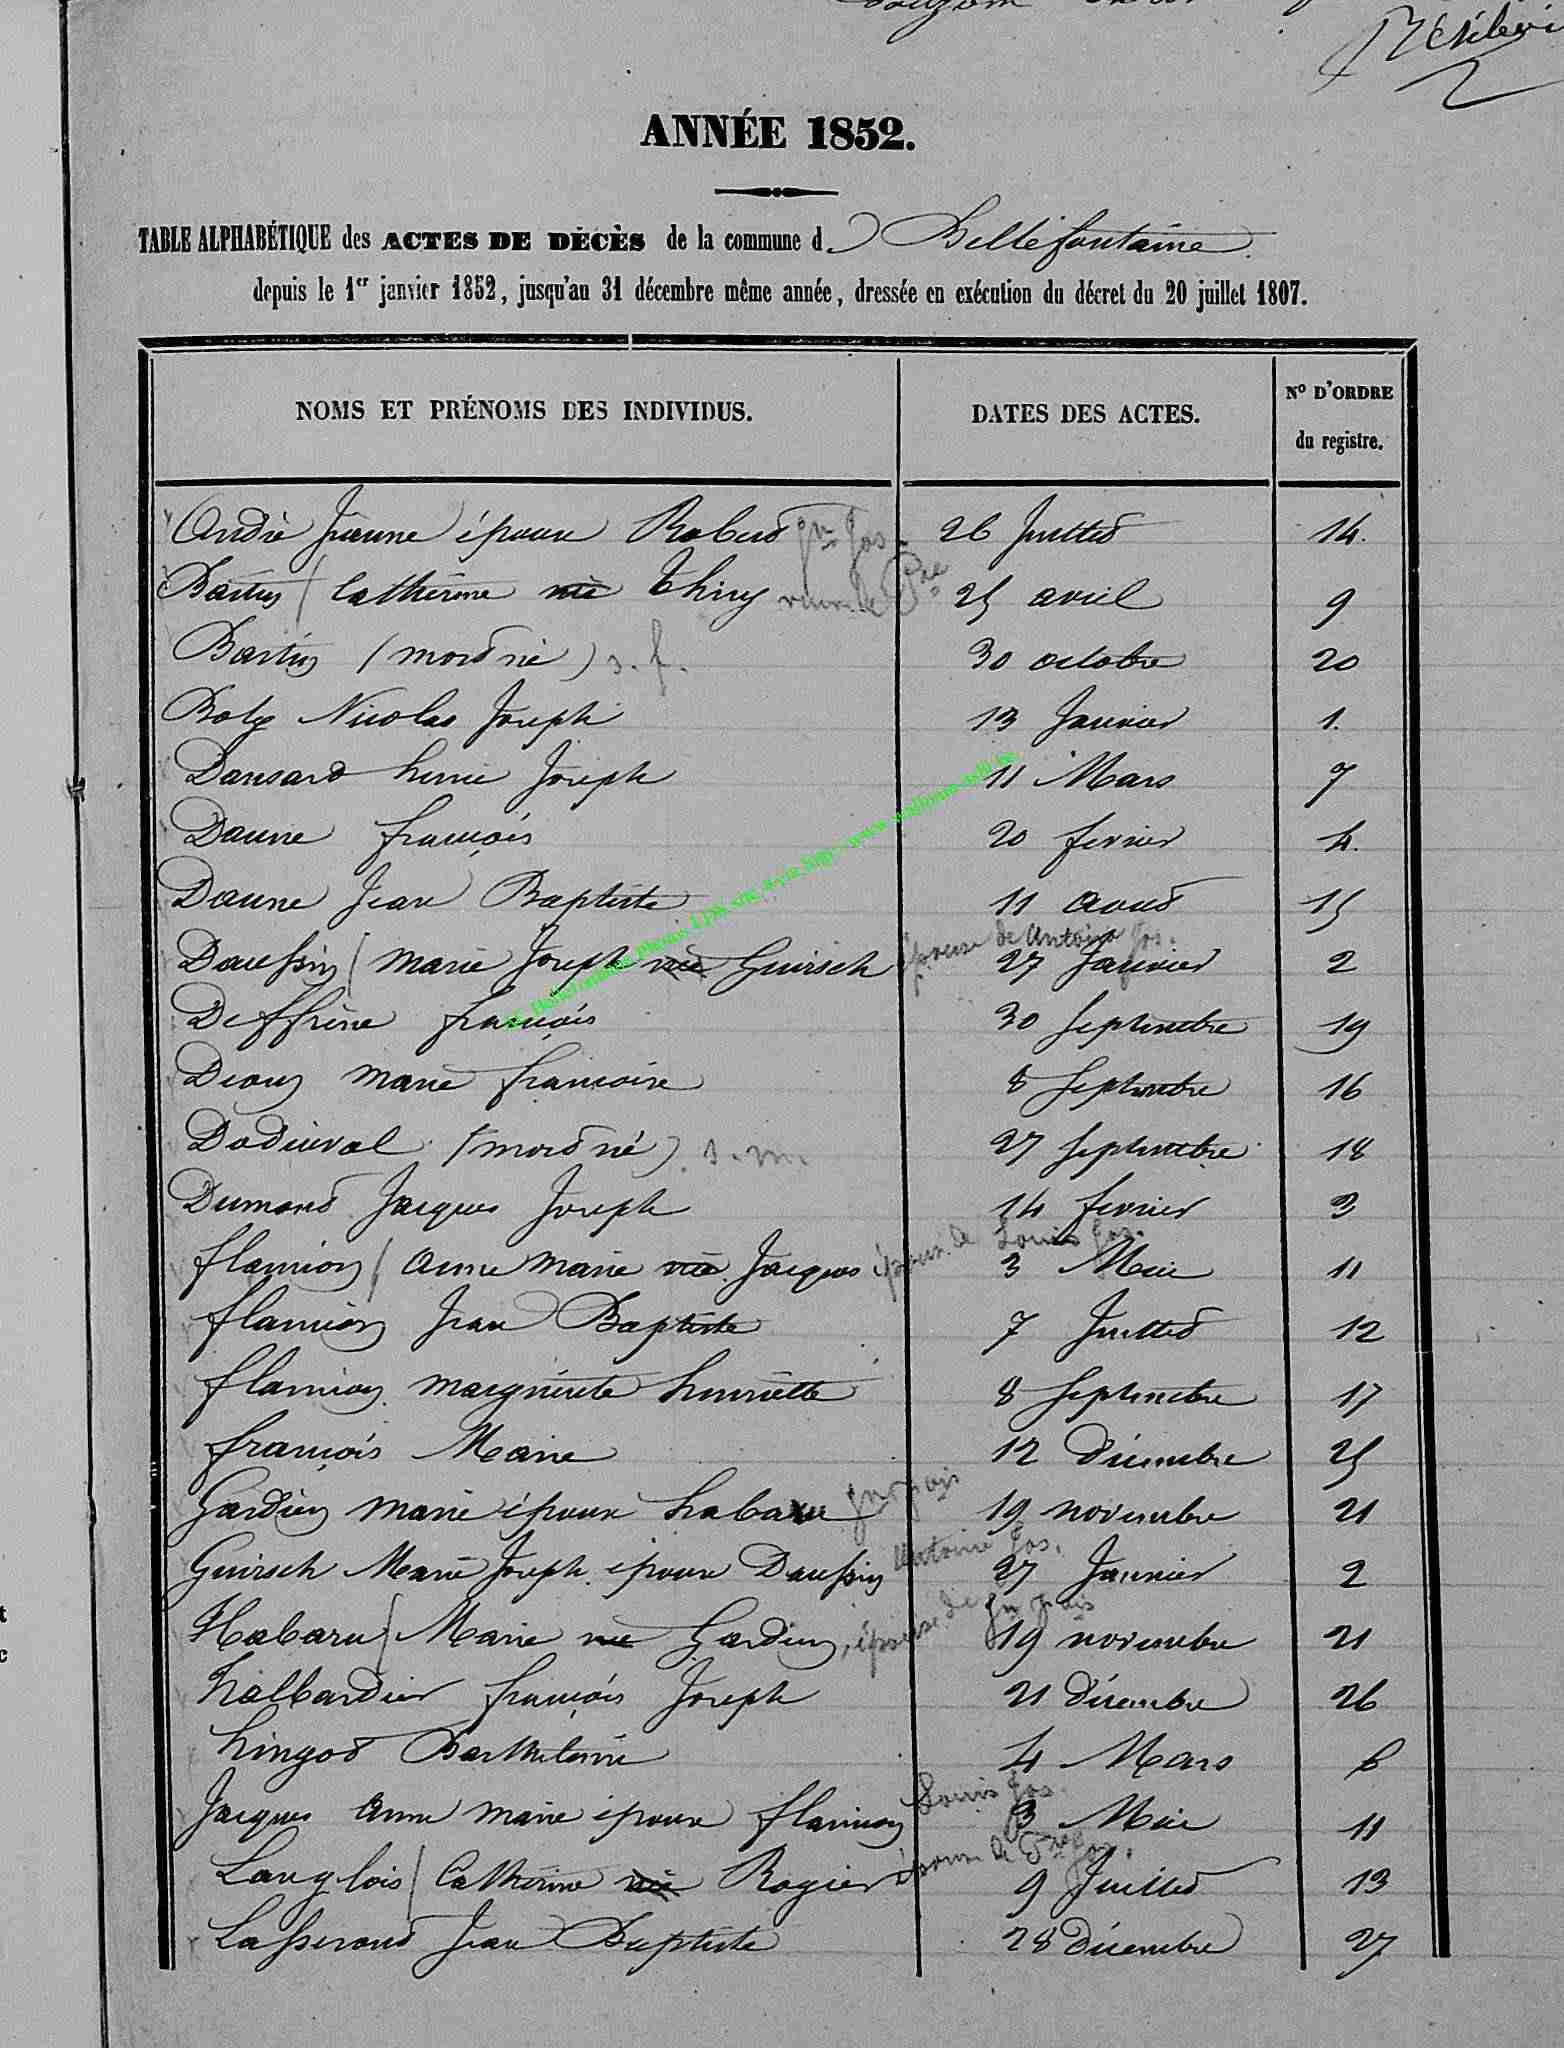 ANNÉE 1852.
TABLE ALPHABÉTIQUE des ACTES DE DÉCÈS de la commune d Bellefontaine
depuis le 1er janvier 1852, jusqu'au 31 décembre même année, dressée en exécution du décret du 20 juillet 1807.
NOMS ET PRÉNOMS DES INDIVIDUS. DATES DES ACTES. No D'ORDRE
du registre.
André Jeanne épouse Robert Jn Jos. 26 Juillet 14.
Catherine née Thiry 25 avril 9
(mort né) s. f. 30 octobre 20
Nicolas Joseph 13 Janvier 1.
Dansard henri Joseph 11 Mars 7
Daune françois 20 fevrier 4.
Daune Jean Baptiste 11 aout 15
épouse de Antoine Jos.
Daussin / Marie Joseph née Guirsch 27 Janvier 2
Deffrène françois 30 Septembre 19
marie francoise 8 Septembre 16
Dodinval (mort né) s. m. 27 Septembre 18
Dumont Jacques Joseph 14 fevrier 3
épouse de Louis Jos.
flamion / anne marie née Jacques 3 Mai 11
flamion Jean Baptiste 7 Juillet 12
flamion marguerite henriette 8 Septembre 17
françois Marie 12 décembre 25
Gardien marie épouse habaru 19 novembre 21
Antoine Jos.
Guirsch Marie Joseph épouse Daussin 27 Janvier 2
Habaru / Marie née Gardien, épouse de 19 novembre 21
halbardier françois Joseph 21 décembre 26
hingot 4 Mars 6
Louis Jos.
Jacques anne marie épouse flamion 3 Mai 11
épouse de
Langlois / Catherine née Rogier 9 Juillet 13
Lasserond Jean Baptiste 28 Décembre 27